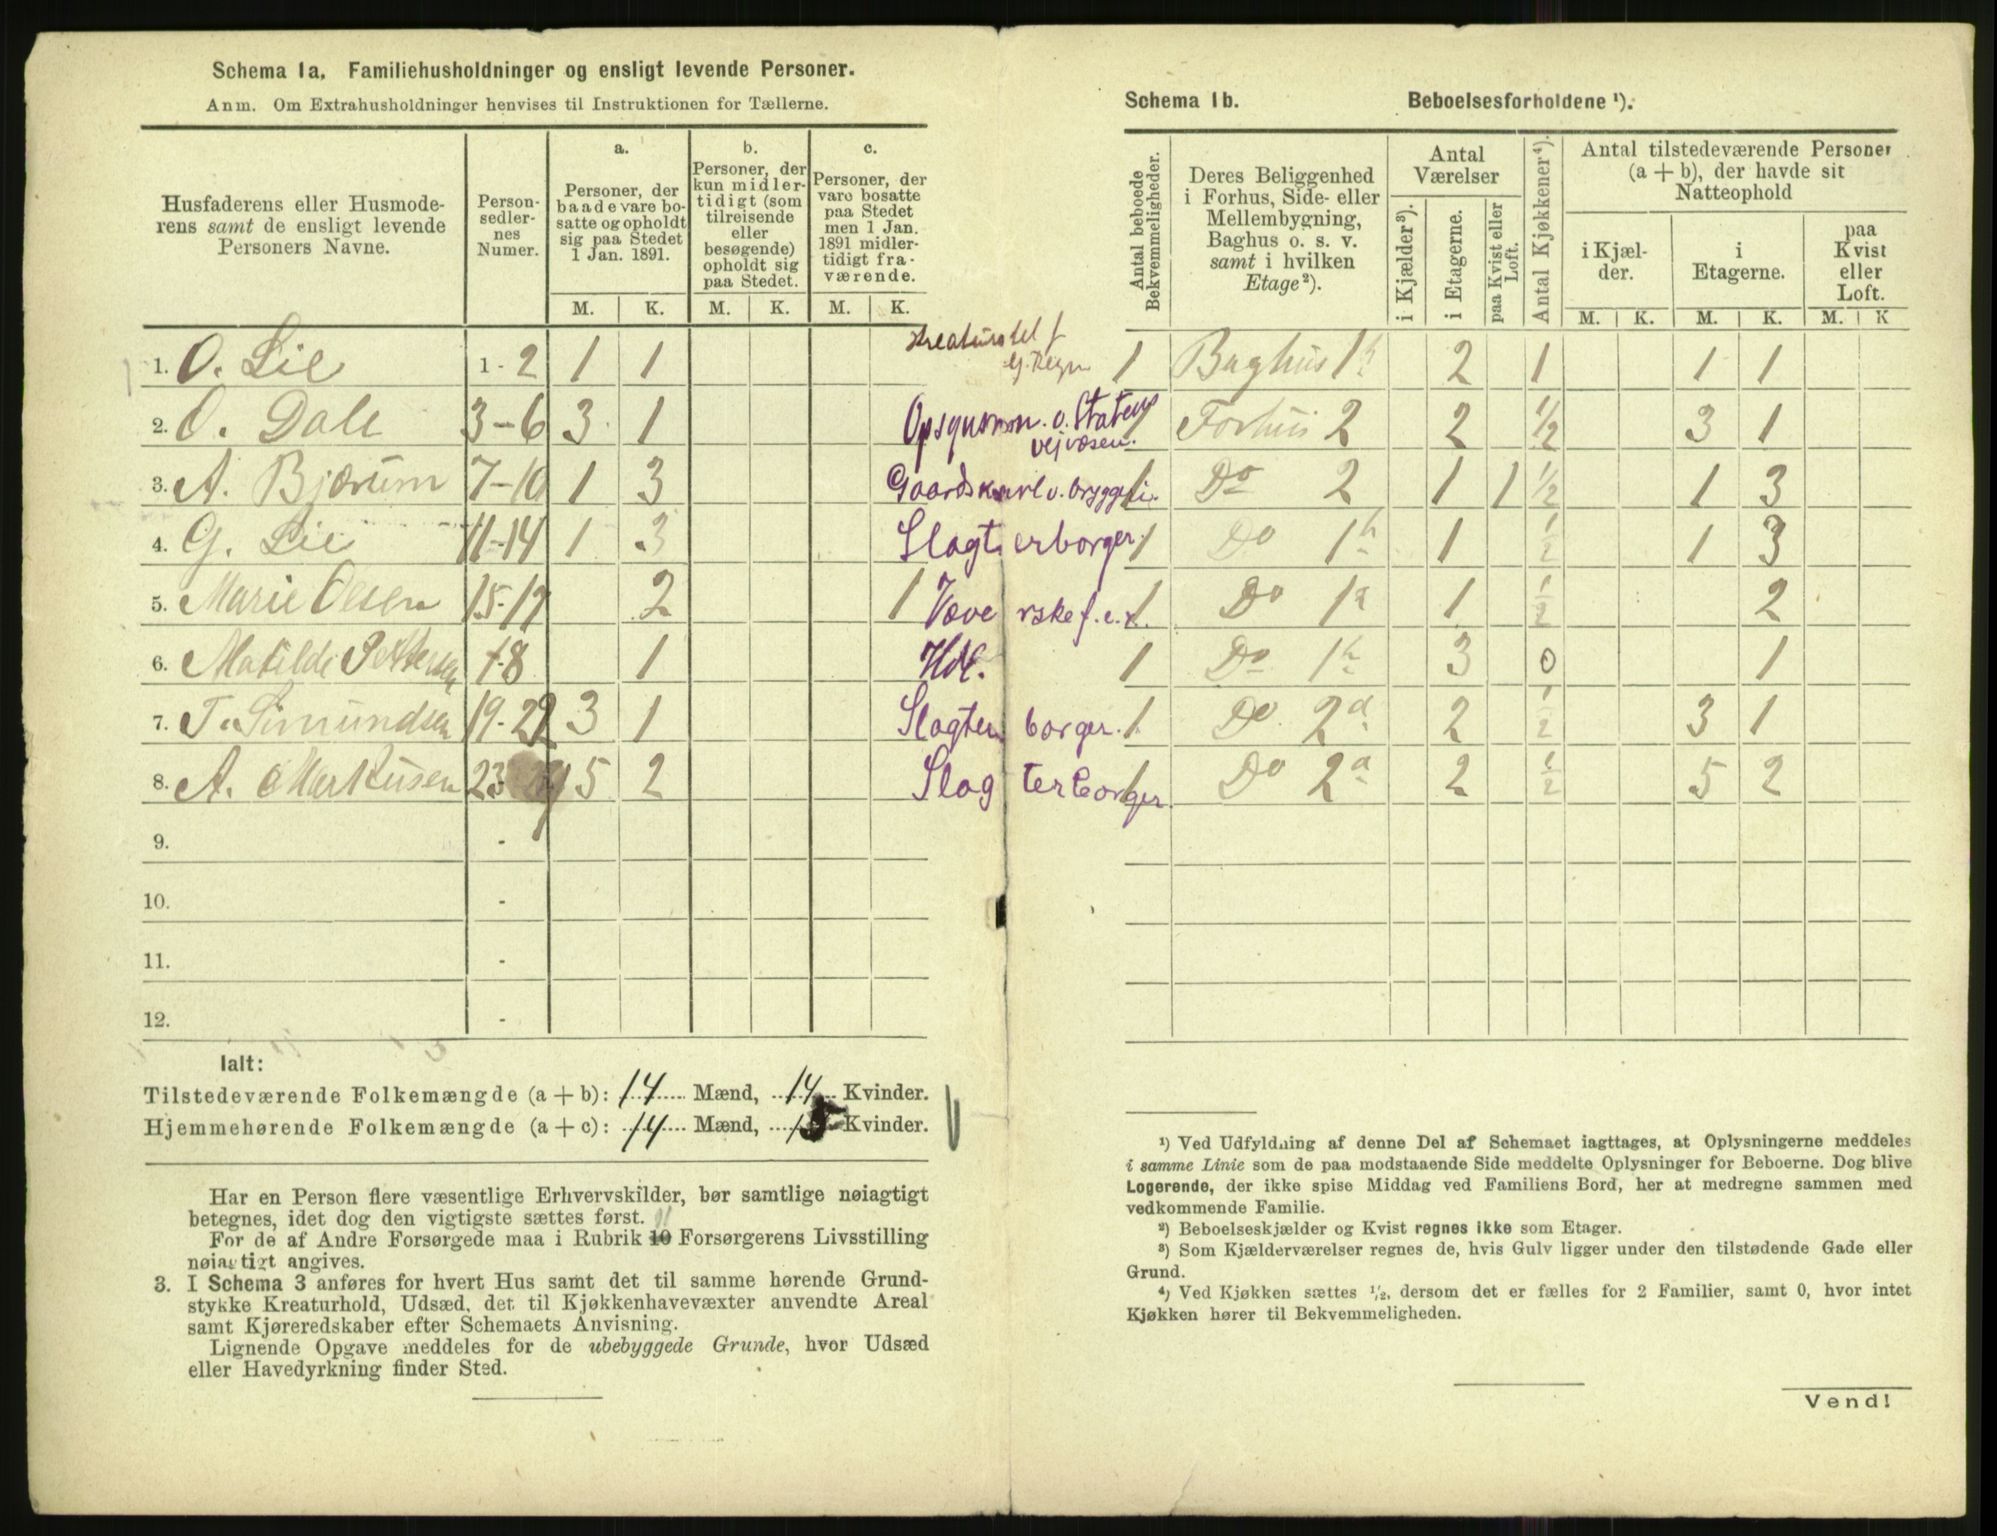 Schema 1a. Familiehusholdninger og ensligt levende Personer.
Anm. Om Extrahusholdninger henvises til Instruktionen for Tællerne.
Husfaderens eller Husmoderens samt de ensligt levende Personers Navne.
Person-
sedler-
nes
Numer.
a.
Personer, der
baade vare bo-
satte og opholdt
sig paa Stedet
1 Jan. 1891.
b.
Personer, der
kun midler-
tidigt (som
tilreisende
eller
besøgende)
opholdt sig
paa Stedet.
c.
Personer, der
vare bosatte
paa Stedet
men 1 Jan.
1891 midler-
tidigt fra-
værende.
M. K. M. K. M. K.
1. O. Lie 1-2 1 1
2. O. Dale 3-6 3 1
3. A. Bjærum 7-10 1 3
4. G. Lie 11-14 1 3
5. Marie Olsen 15-17 2 1
6. Matilde Pettersen 18 1
7. T. Simundsen 19-22 3 1
8. A. Markusen 23-29 5 2
9. -
10. -
11. -
12. -
Opsynsm. v. Statens
vejvæsen.
Gaardskarl v. bryggeri.
Slagterborger.
Væverske f. e. r.
Hdl.
Slagterborger.
Slagterborger.
Ialt:
Tilstedeværende Folkemængde (a + b): 14 Mænd, 14 Kvinder.
Hjemmehørende Folkemængde (a + c): 14 Mænd, 15 Kvinder.
Har en Person flere væsentlige Erhvervskilder, bør samtlige nøiagtigt
betegnes, idet dog den vigtigste sættes først.
For de af Andre Forsørgede maa i Rubrik 10 Forsørgerens Livsstilling
nøiagtigt angives.
3. I Schema 3 anføres for hvert Hus samt det til samme hørende Grund-
stykke Kreaturhold, Udsæd, det til Kjøkkenhavevæxter anvendte Areal
samt Kjøreredskaber efter Schemaets Anvisning.
Lignende Opgave meddeles for de ubebyggede Grunde, hvor Udsæd
eller Havedyrkning finder Sted.
Schema 1b. Beboelsesforholdene ¹).
Antal beboede
Bekvemmeligheder.
Deres Beliggenhed
i Forhus, Side- eller
Mellembygning,
Baghus o. s. v.
samt i hvilken
Etage ²).
Antal
Værelser
i Kjælder ³).
i Etagerne.
paa Kvist eller
Loft.
Antal Kjøkkener ⁴).
Antal tilstedeværende Personer
(a + b), der havde sit
Natteophold
i Kjæl-
der.
i
Etagerne.
paa
Kvist
eller
Loft.
M. K. M. K. M. K
1 Baghus 1 h 2 1 1 1
1 Forhus 2 2 1/2 3 1
1 Do 2 1 1 1/2 1 3
1 Do 1 h 1 1/2 1 3
1 Do 1 a 1 1/2 2
1 Do 1 h 3 0 1
1 Do 2 a 2 1/2 3 1
1 Do 2 a 2 1/2 5 2
¹) Ved Udfyldning af denne Del af Schemaet iagttages, at Oplysningerne meddeles
i samme Linie som de paa modstaaende Side meddelte Oplysninger for Beboerne. Dog blive
Logerende, der ikke spise Middag ved Familiens Bord, her at medregne sammen med
vedkommende Familie.
²) Beboelseskjælder og Kvist regnes ikke som Etager.
³) Som Kjælderværelser regnes de, hvis Gulv ligger under den tilstødende Gade eller
Grund.
⁴) Ved Kjøkken sættes ½, dersom det er fælles for 2 Familier, samt 0, hvor intet
Kjøkken hører til Bekvemmeligheden.
Vend!